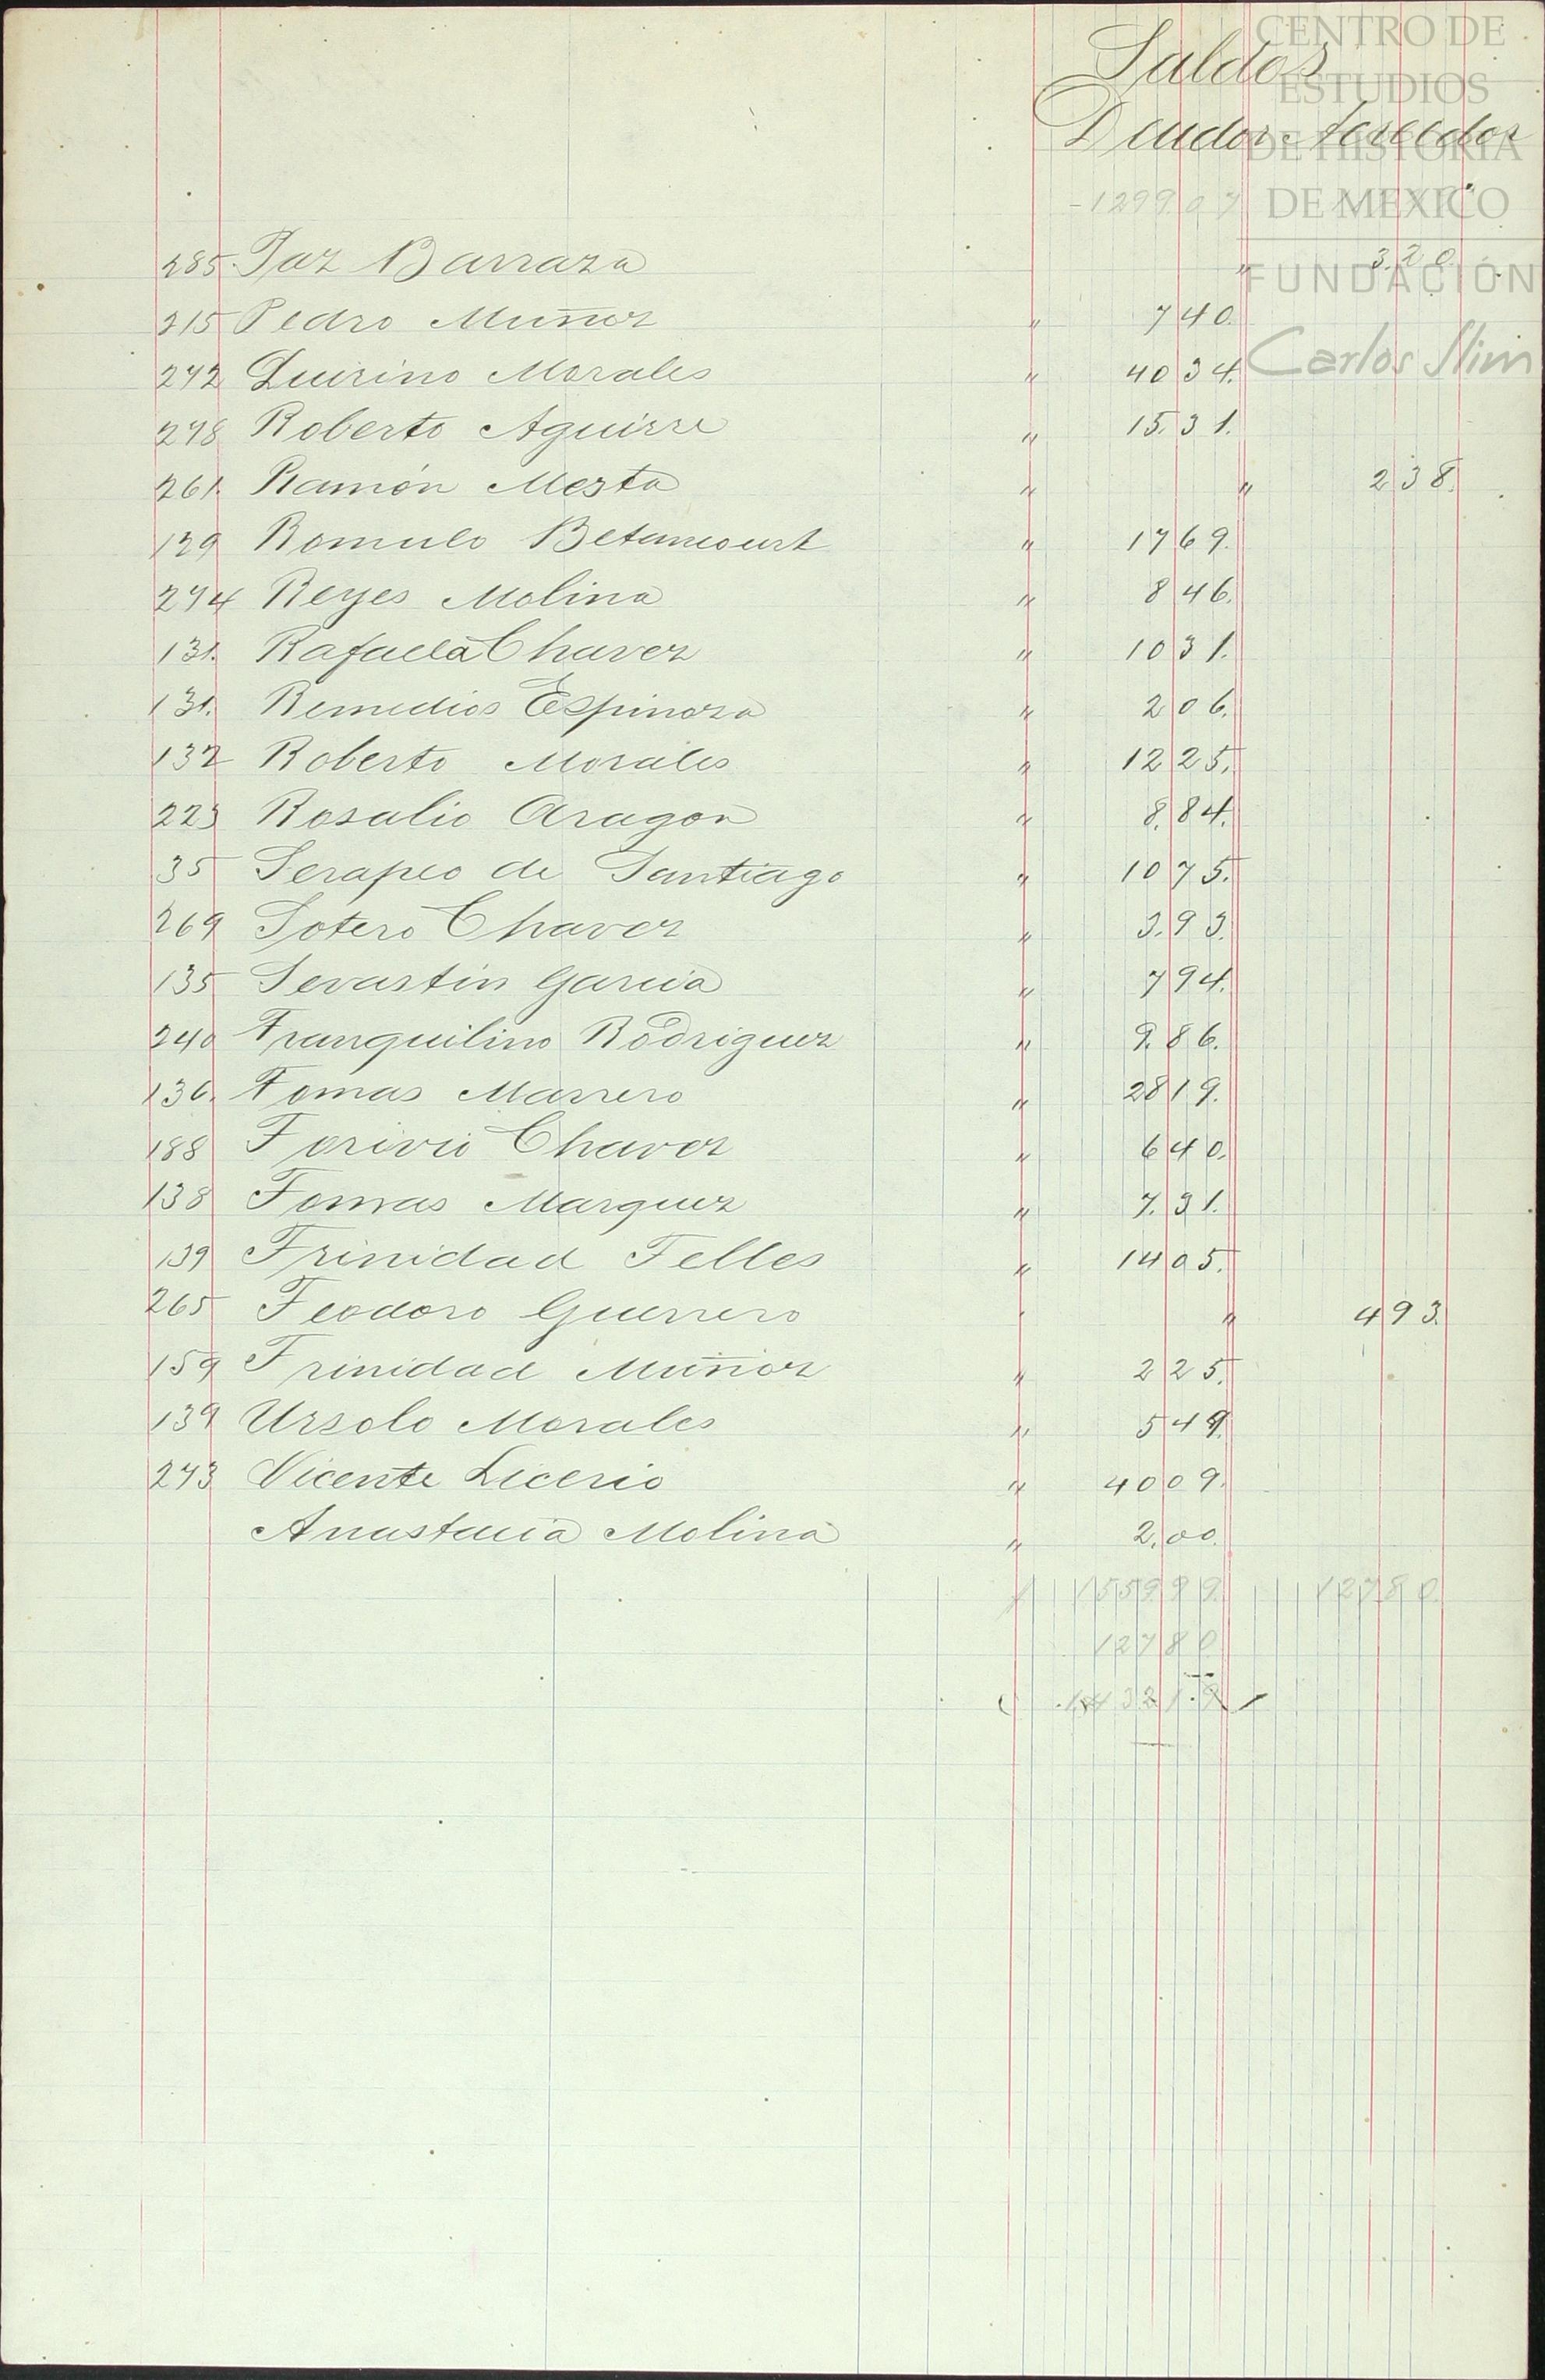 Saldos
Deudor Acreedor
CENTRO DE
ESTUDIOS
DE HISTORIA
DE MEXICO
FUNDACIÓN
Carlos Slim
1299.07
285. Paz Barraza " 3.20.
215 Pedro Muñoz " 740.
242 Quirino Morales " 4034.
278 Roberto Aguirre " 15.31.
261. Ramón Mesta " " 238.
129 Romulo Betancourt " 1769.
274 Reyes Molina " 846.
131. Rafaela Chavez " 1031.
131. Remedios Espinoza " 206.
132 Roberto Morales " 1225.
223 Rosalio Aragon " 8.84.
35 Serapeo de Santiago " 1075.
269 Sotero Chavez " 3.93.
135 Sevastin Garcia " 794.
240 Tranquilino Rodriguez " 9.86.
136. Tomas Marrero " 2819.
188 Torivio Chavez " 640.
138 Tomas Marquez " 7.31.
139 Trinidad Telles " 1405.
265 Teodoro Guerrero " 493.
159 Trinidad Muñoz " 225.
139 Ursolo Morales " 549.
243 Vicente Licerio " 4009.
Anastacia Molina " 2.00.
155999. 12780.
12780
143219